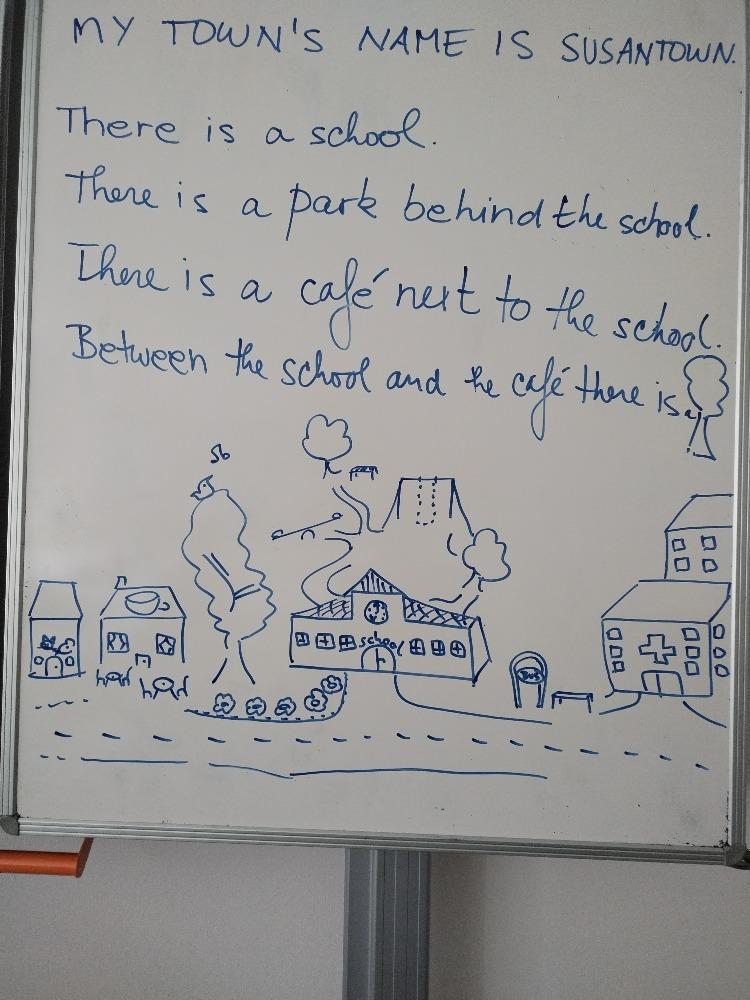 MY TOWN'S NAME IS SUSANTOWN.
There is a school.
There is a park behind the school.
There is a café next to the school.
Between the school and the café there is a
school
BUS